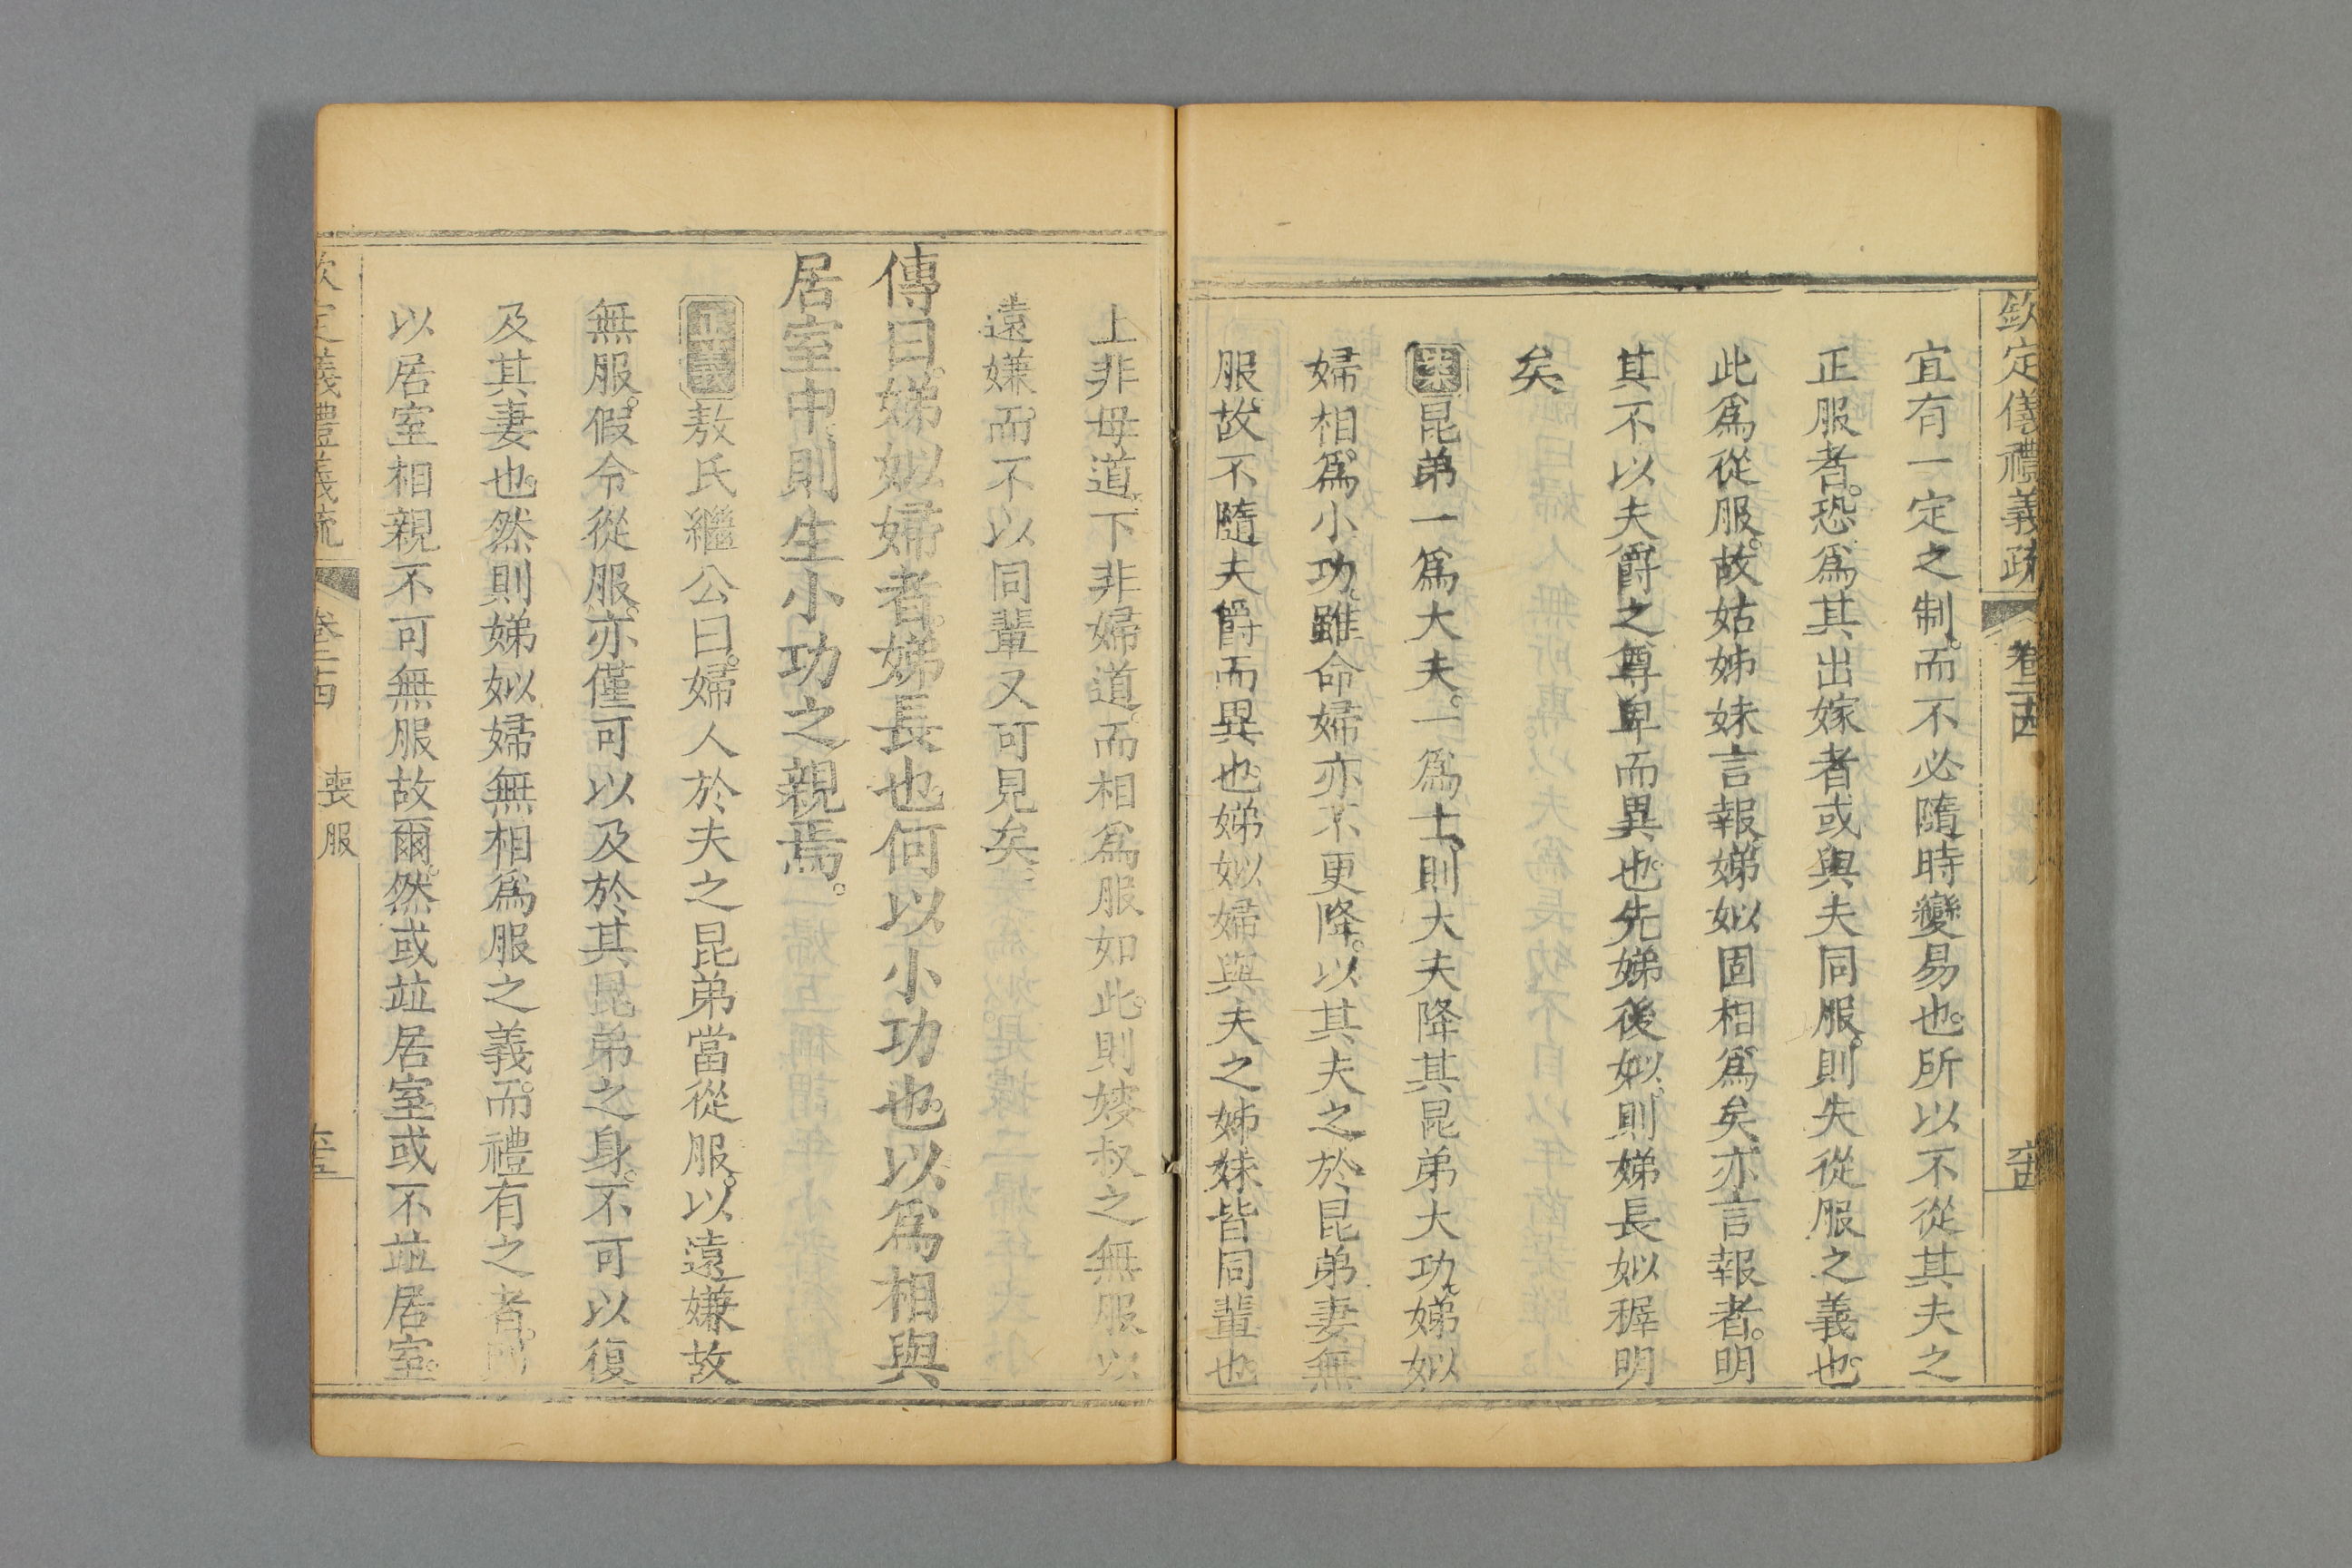 欽定儀禮義疏 卷二十四
宜有一定之制。而不必隨時變易也。所以不從其夫之
正服者。恐爲其出嫁者或與夫同服。則失從服之義也。
此爲從服。故姑姊妹言報。娣姒固相爲矣。亦言報者。明
其不以夫爵之尊卑而異也。先娣後姒。則娣長姒穉明
矣。
案昆弟一爲大夫。一爲士。則大夫降其昆弟大功。娣姒
婦相爲小功。雖命婦亦不更降。以其夫之於昆弟妻無
服。故不隨夫爵而異也。娣姒婦與夫之姊妹皆同輩也。
上非母道。下非婦道。而相爲服如此。則嫂叔之無服以
遠嫌。而不以同輩又可見矣。
傳曰。娣姒婦者。娣長也。何以小功也。以爲相與
居室中。則生小功之親焉。
正義敖氏繼公曰。婦人於夫之昆弟當從服。以遠嫌故
無服。假令從服。亦僅可以及於其昆弟之身。不可以復
及其妻也。然則娣姒婦無相爲服之義。而禮有之者。
以居室相親不可無服故爾。然或竝居室。或不竝居室。
欽定儀禮義疏 卷二十四 喪服